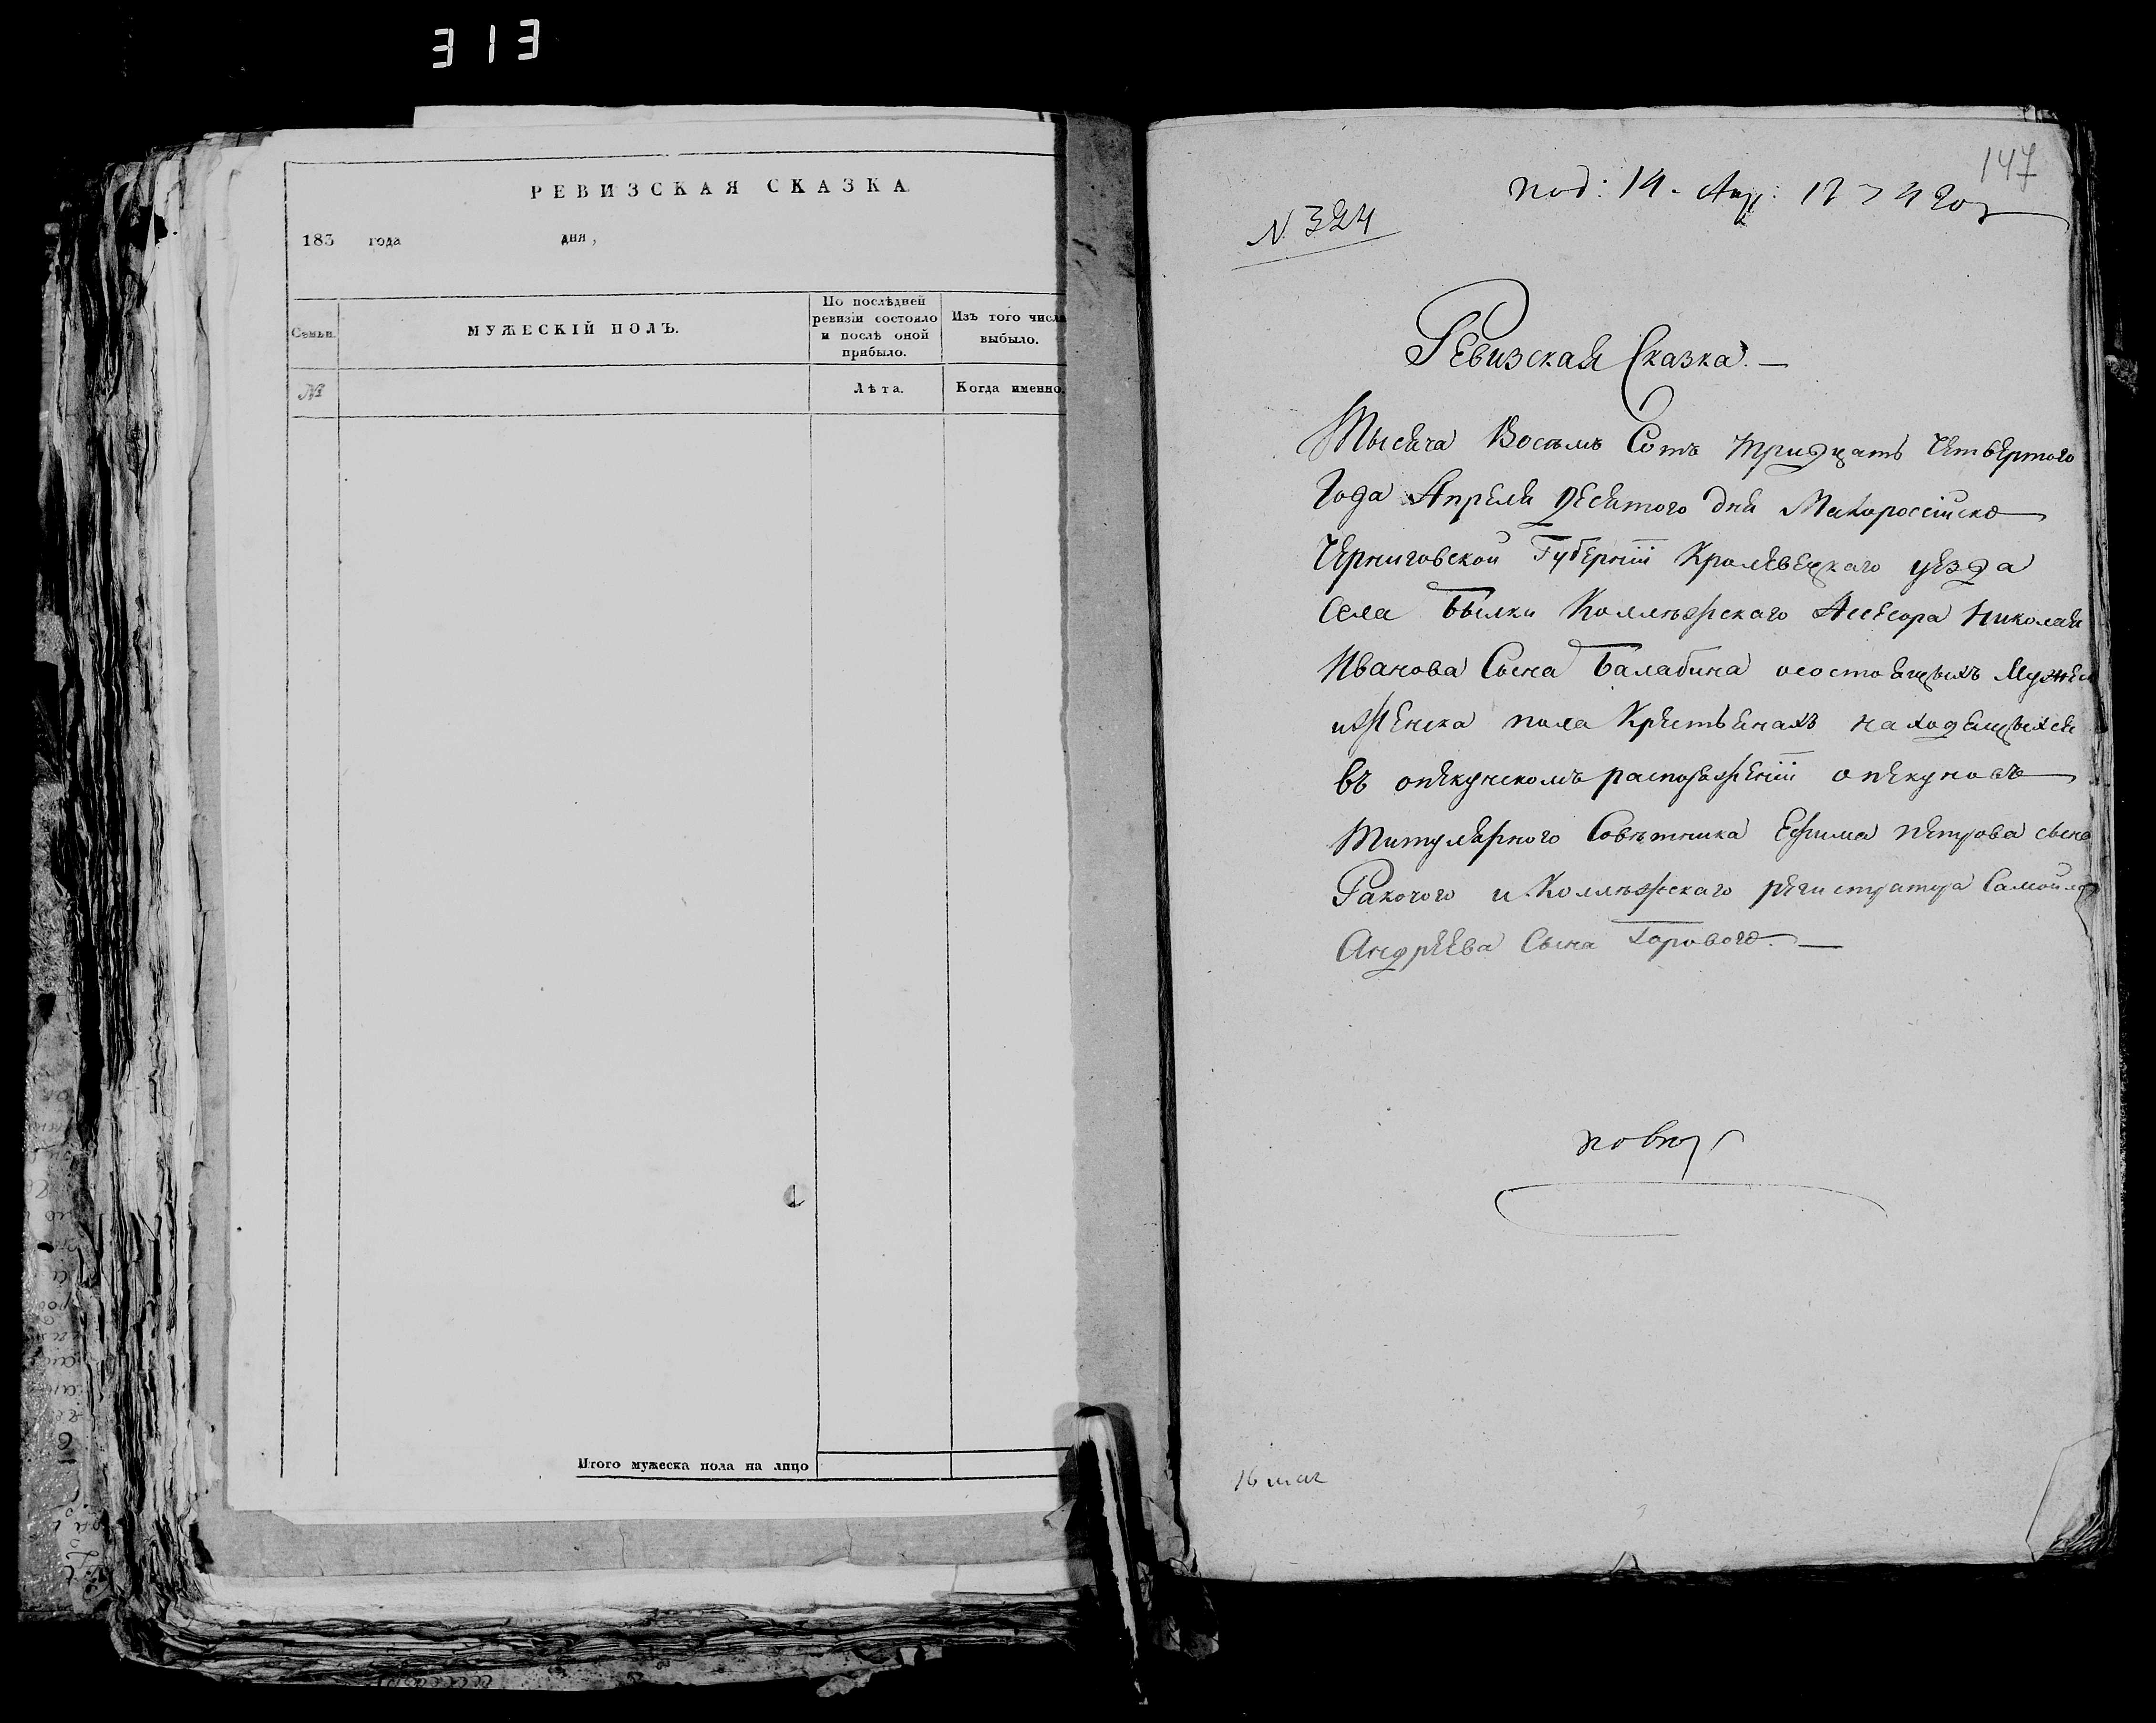 313
РЕВИЗСКАЯ СКАЗКА
183 года дня,
Семьи.
МУЖЕСКІЙ ПОЛЪ.
По послѣдней ревизіи состояло и послѣ оной прибыло.
Изъ того числа выбыло.
№
Лѣта.
Когда именно.
Итого мужеска пола на лицо
147
под: 14. Апр: 1834 год
N. 324
Ревизская Сказка. —
Тысяча Восемь Сотъ тридцать Четвертого
Года Апреля десятого дня Малороссійско
Черниговской Губерніи Кролевецкаго уезда
Села Былки Коллѣжского Асесора Николая
Иванова Сына Балабина осостоящыхъ Мужеск
иженска пола Крестьянахъ находящыхся
въ опекунскомъ распоряженіи опекуновъ
Титулярного Совѣтника Ефима петрова сына
Ракочого и Коллѣжскаго регистратора Самойла
Андреева Сына Горового. —